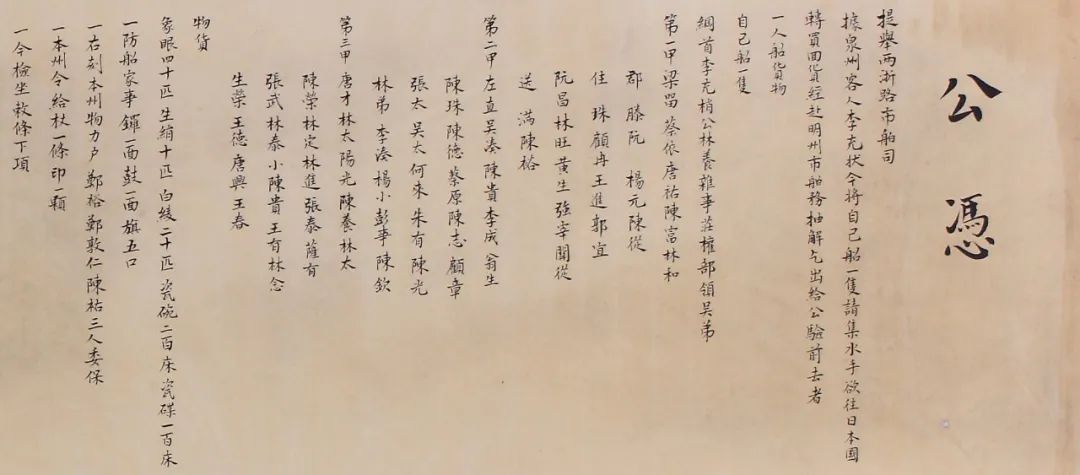 公憑
提舉兩浙路市舶司
據泉州客人李充狀今將自己船一隻請集水手欲往日本國
轉買囬貨經赴明州市舶務抽解乞出給公驗前去者
一人船貨物
自己船一隻
綱首李充梢公林養雜事莊權部領吳弟
第一甲梁留 蔡依 唐祐 陳富 林和
郡滕 阮 楊元 陳從
住珠 顧冉 王進 郭宜
阮昌 林旺 黃生 強宰 關從
送滿 陳裕
第二甲左直 吳湊 陳貴 李成 翁生
陳珠 陳德 蔡原 陳志 顧章
張太 吳太 何來 朱有 陳光
林弟 李湊 楊小 彭事 陳欽
第三甲唐才 林太 陽光 陳養 林太
陳榮 林定 林進 張泰 薩有
張武 林泰 小陳貴 王有 林念
生榮 王德 唐興 王春
物貨
象眼四十匹 生絹十匹 白綾二十匹 瓷碗二百床 瓷碟一百床
一防船家事 鑼一面 鼓一面 旗五口
一右刻本州物力户 鄭裕 鄭敦仁 陳祐三人委保
一本州令給杖一條 印一顆
一令檢坐敕條下項